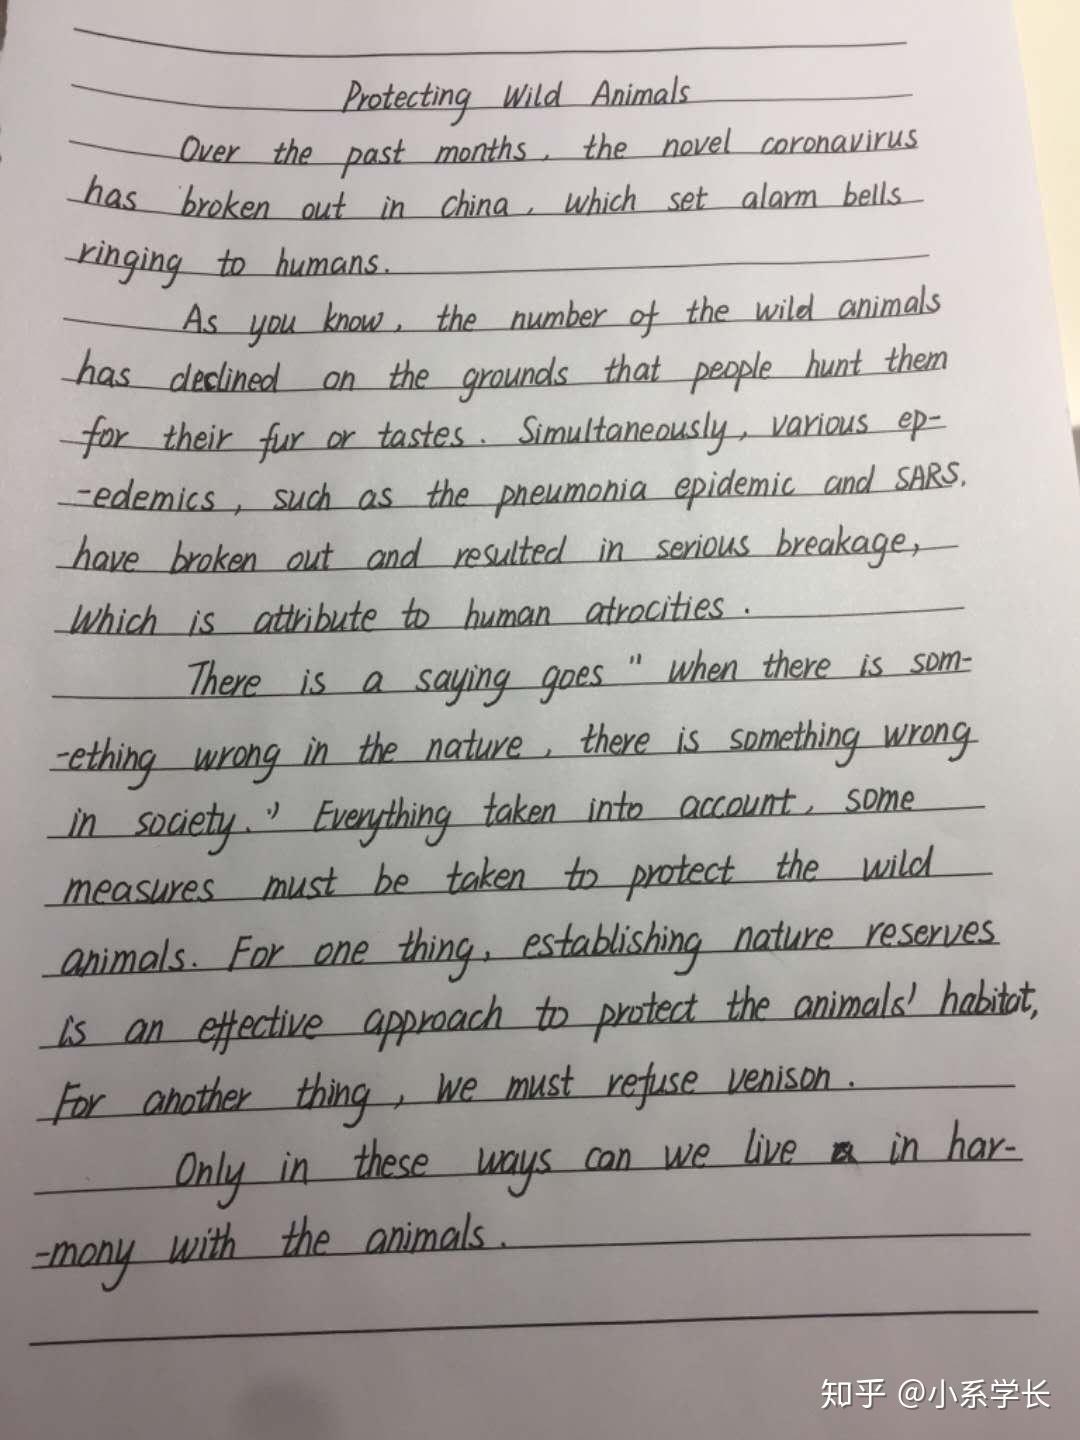 Protecting Wild Animals
Over the past months, the novel coronavirus
has broken out in China, which set alarm bells
ringing to humans.
As you know, the number of the wild animals
has declined on the grounds that people hunt them
for their fur or tastes. Simultaneously, various ep-
-edemics, such as the pneumonia epidemic and SARS.
have broken out and resulted in serious breakage,
Which is attribute to human atrocities.
There is a saying goes " when there is som-
-ething wrong in the nature, there is something wrong
in society." Everything taken into account, some
measures must be taken to protect the wild
animals. For one thing, establishing nature reserves
is an effective approach to protect the animals' habitat,
For another thing, we must refuse venison.
Only in these ways can we live in har-
-mony with the animals.
知乎 @小系学长